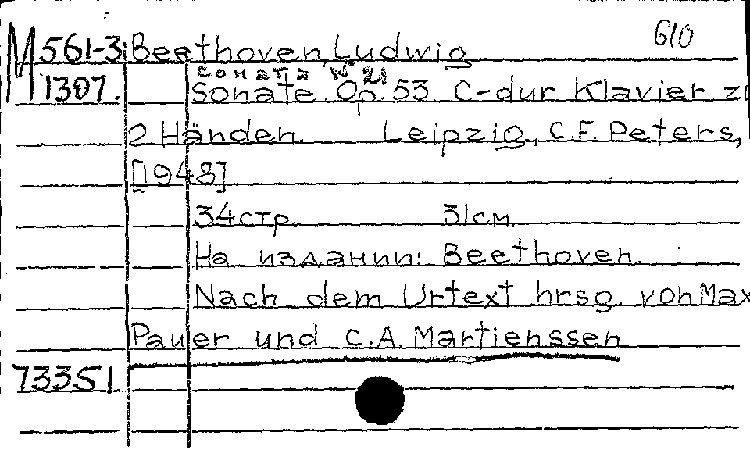 610
М 561-3 Beethoven, Ludwig
Соната № 21
1307. Sonate. Op. 53 C-dur Klavier zu
2 Händen. Leipzig, C.F. Peters,
[1948]
34 стр. 31 см.
На издании: Beethoven.
Nach dem Urtext hrsg. von Max
Pauer und C.A. Martienssen
73351